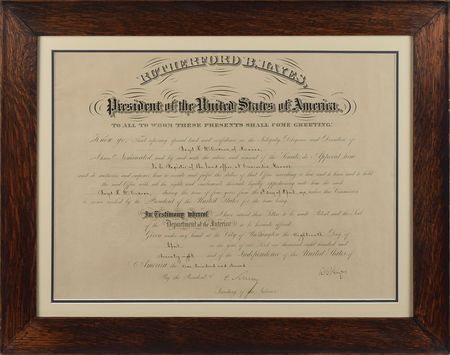 RUTHERFORD B. HAYES,
President of the United States of America,
TO ALL TO WHOM THESE PRESENTS SHALL COME GREETING:
Know ye, That reposing special trust and confidence in the Integrity Diligence and Discretion of
of Kansas
I have Nominated and by and with the advice and consent of the Senate, do Appoint him
to be Register of the Land Office at Kansas
and do authorize and empower him to execute and fulfil the duties of that Office according to law and to have and to hold
the said Office with all the rights and emoluments thereunto legally appertaining unto him the said
during the term of four years from the
by the President of the United States for the time being.
In Testimony whereof I have caused these Letters to be made Patent and the Seal
of the Department of the Interior to be hereunto affixed.
Given under my hand at the City of Washington the Eighteenth Day of
April in the year of our Lord one thousand eight hundred and
seventy eight and of the Independence of the United States of
America the one hundred and second
By the President
Secretary of the Interior